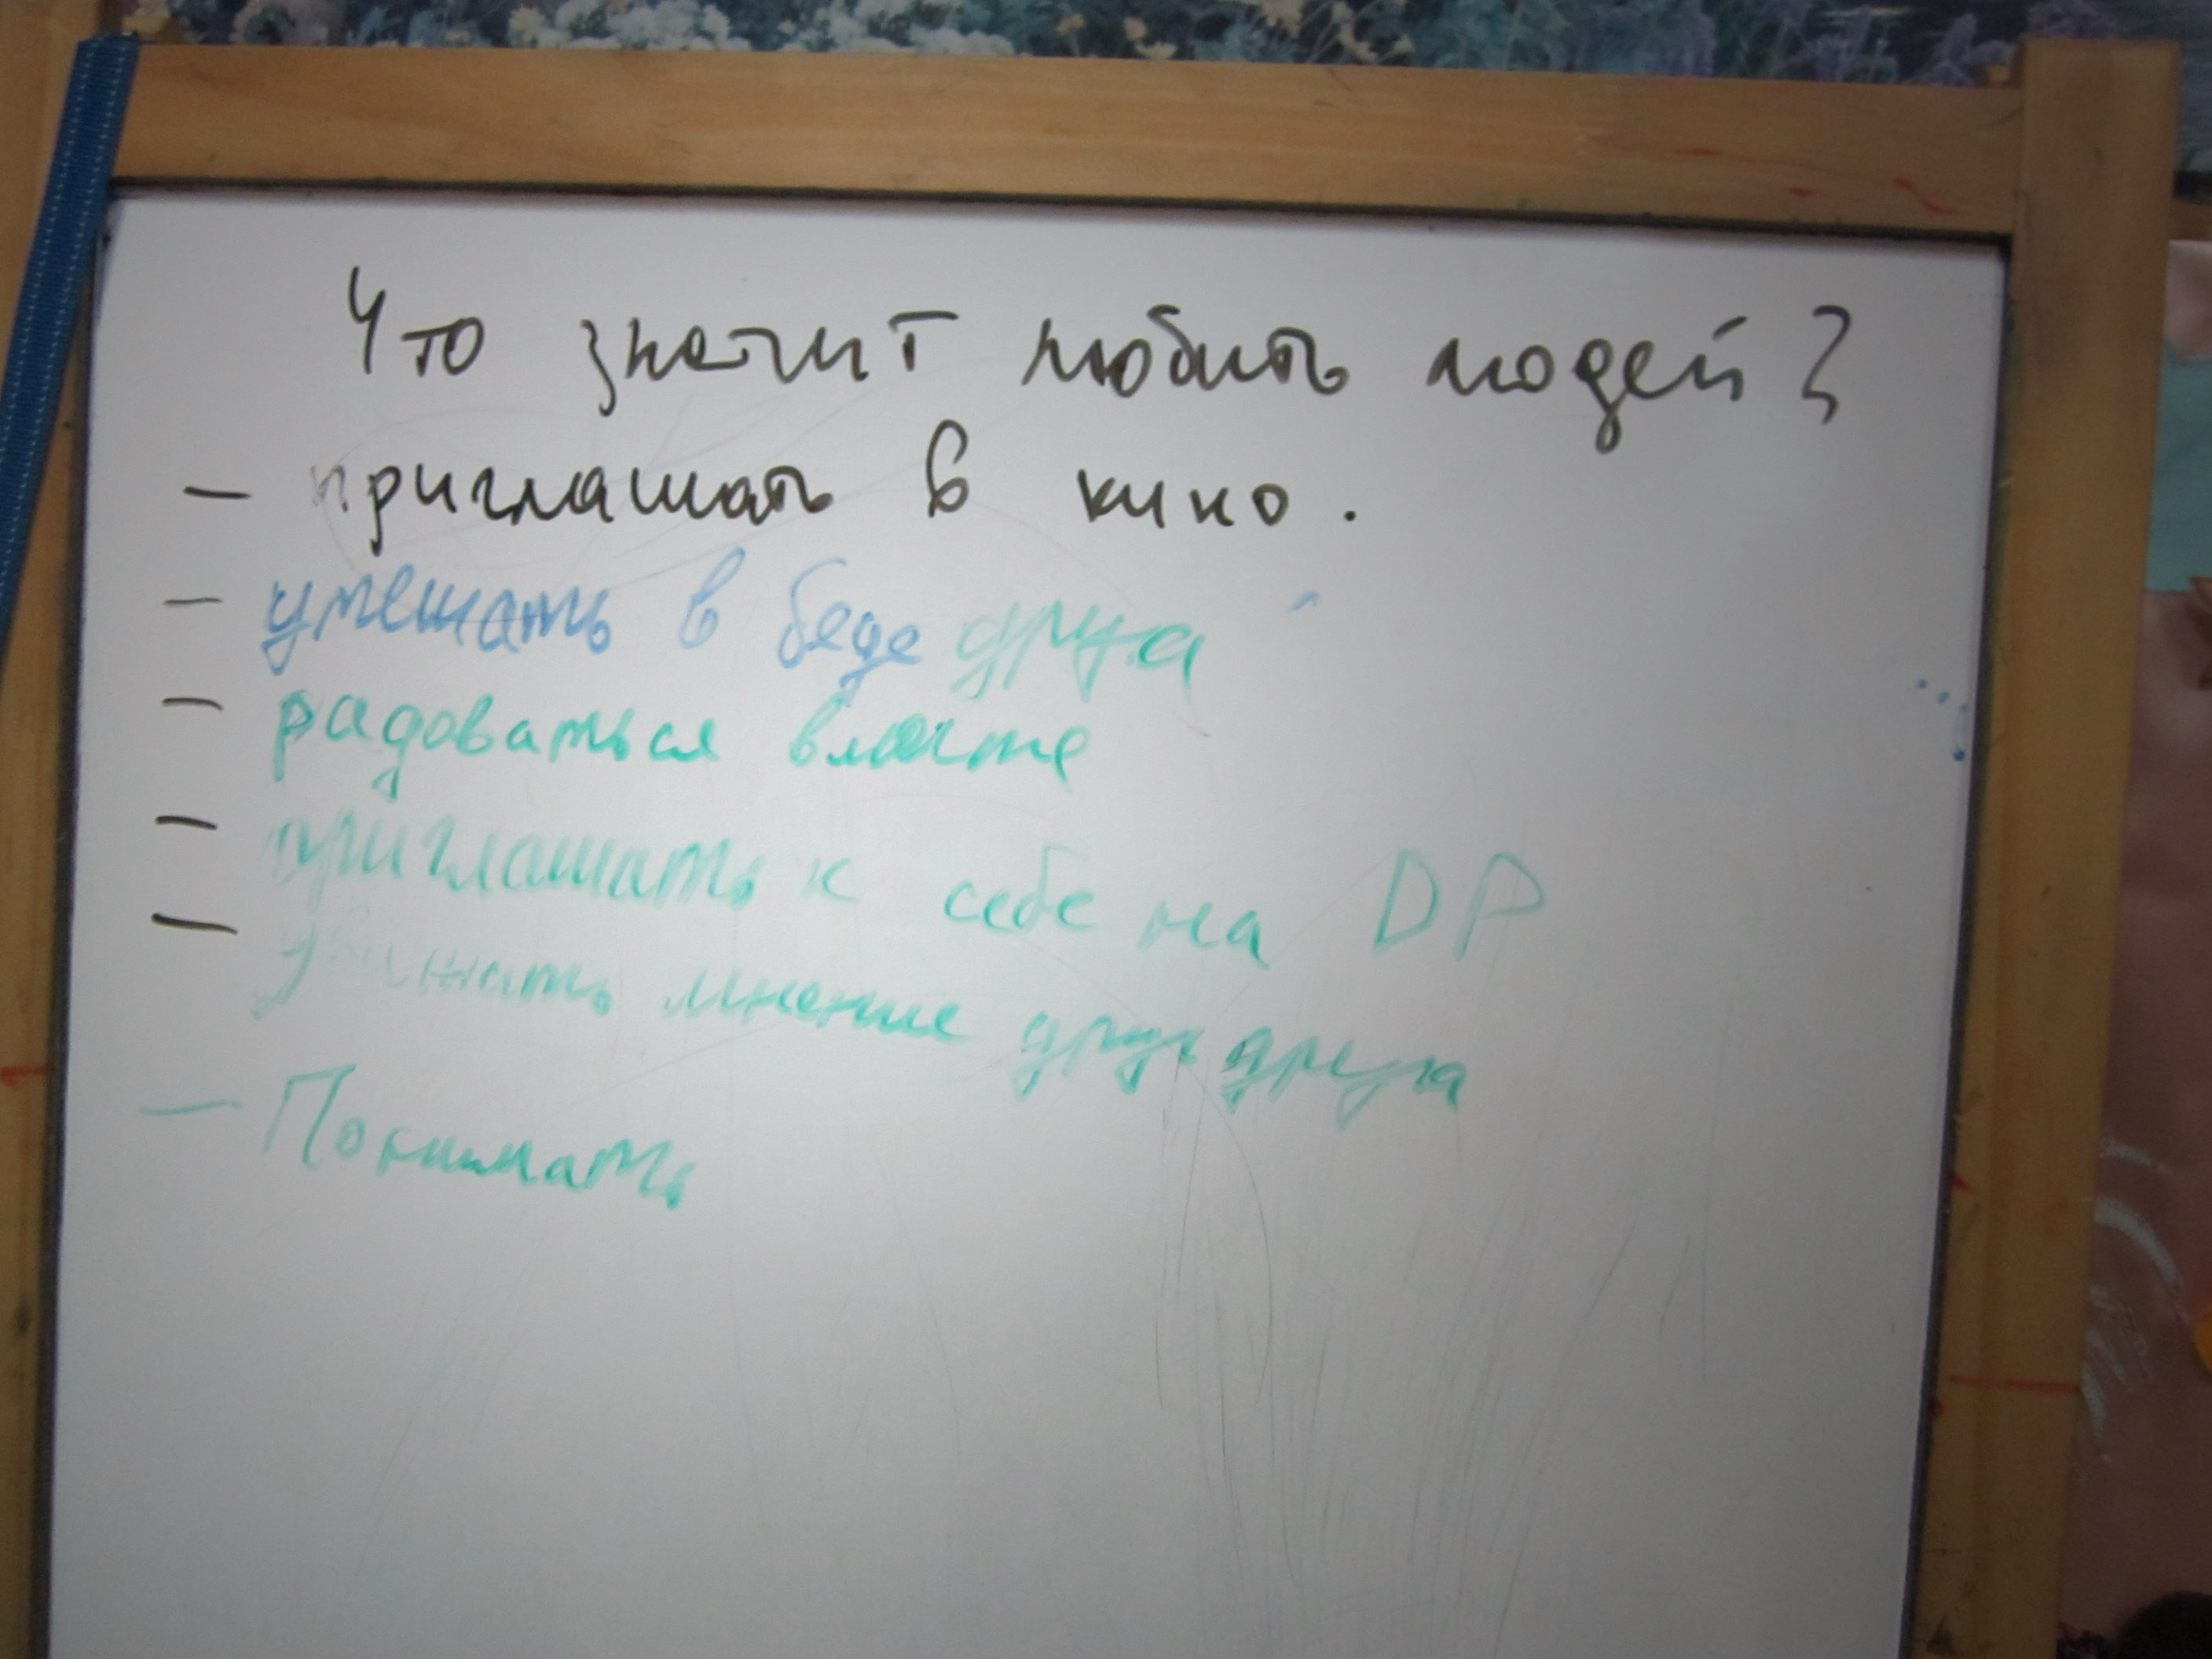 Что значит любить людей?
- приглашать в кино.
- утешать в беде друга
- радоваться вместе
- приглашать к себе на DP
- уважать мнение друг друга
- Понимать